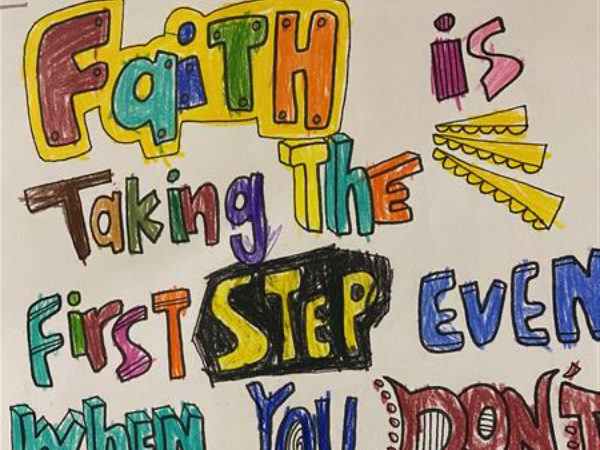 FaiTH is
Taking The
FirST STEP EVEN
WhEN YOU DON'T